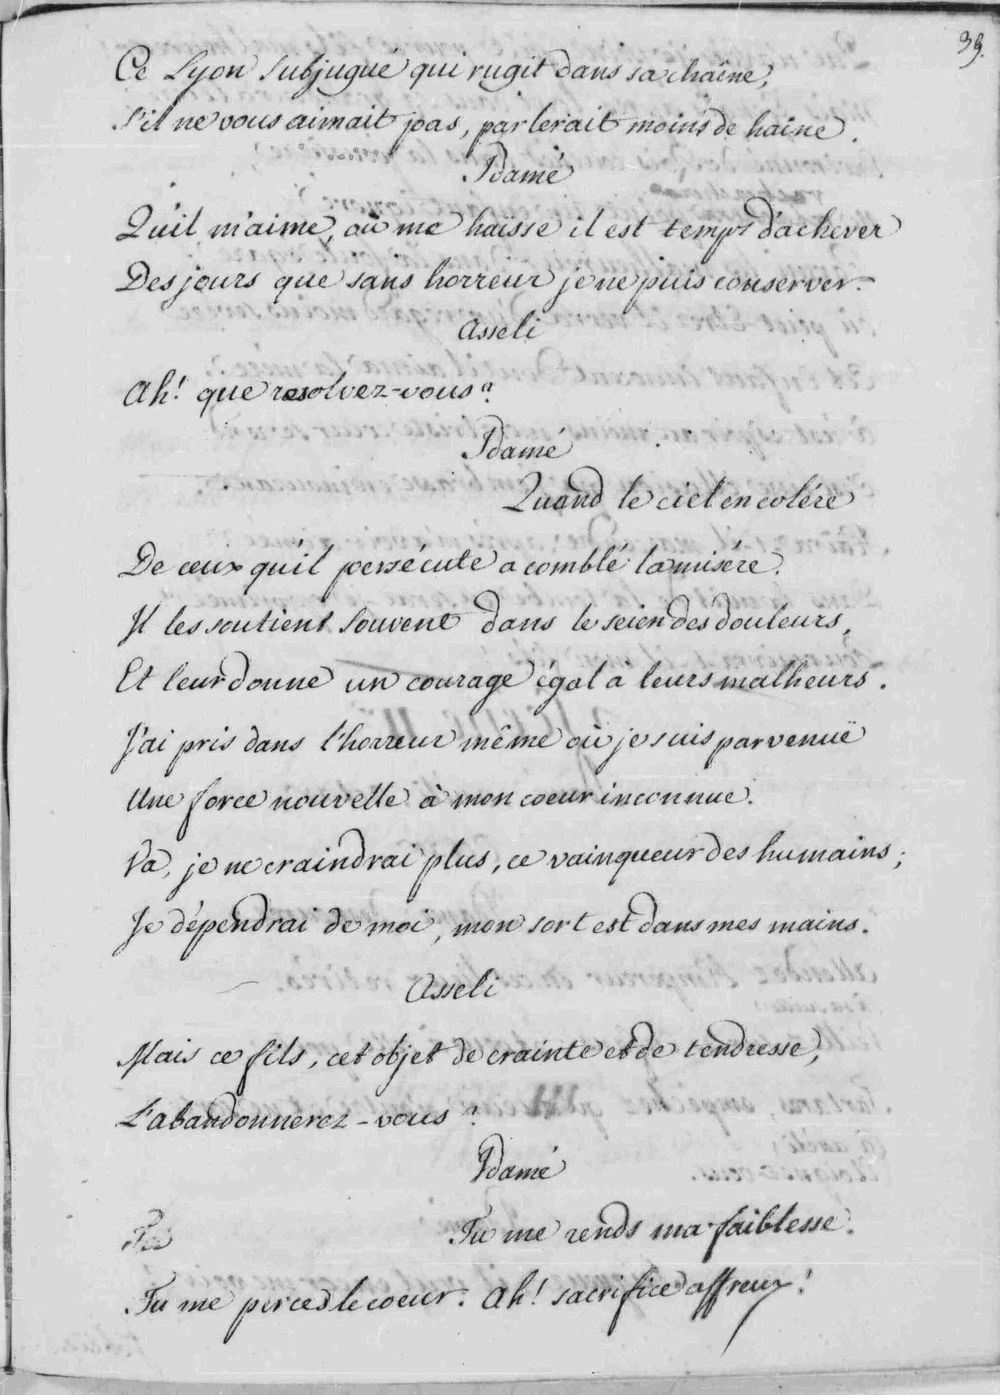 39.
Ce Lyon subjugué qui rugit dans sa chaîne,
S'il ne vous aimait pas, parlerait moins de haine.
Idamé
Qu'il m'aime, où me haïsse il est temps d'achever
Des jours que sans horreur je ne puis conserver.
Asseli
Ah! que resolvez-vous?
Idamé
Quand le ciel en colére
De ceux qu'il persécute a comblé la misére.
Il les soutient souvent dans le seien des douleurs,
Et leur donne un courage égal a leurs malheurs.
J'ai pris dans l'horreur même où je suis parvenuë
Une force nouvelle à mon coeur inconnue.
Va, je ne craindrai plus, ce vainqueur des humains;
Je dépendrai de moi, mon sort est dans mes mains.
Asseli
Mais ce fils, cet objet de crainte et de tendresse,
L'abandonnerez-vous?
Idamé
Tu me rends ma faiblesse.
Tu me perces le coeur. Ah! sacrifice affreux!